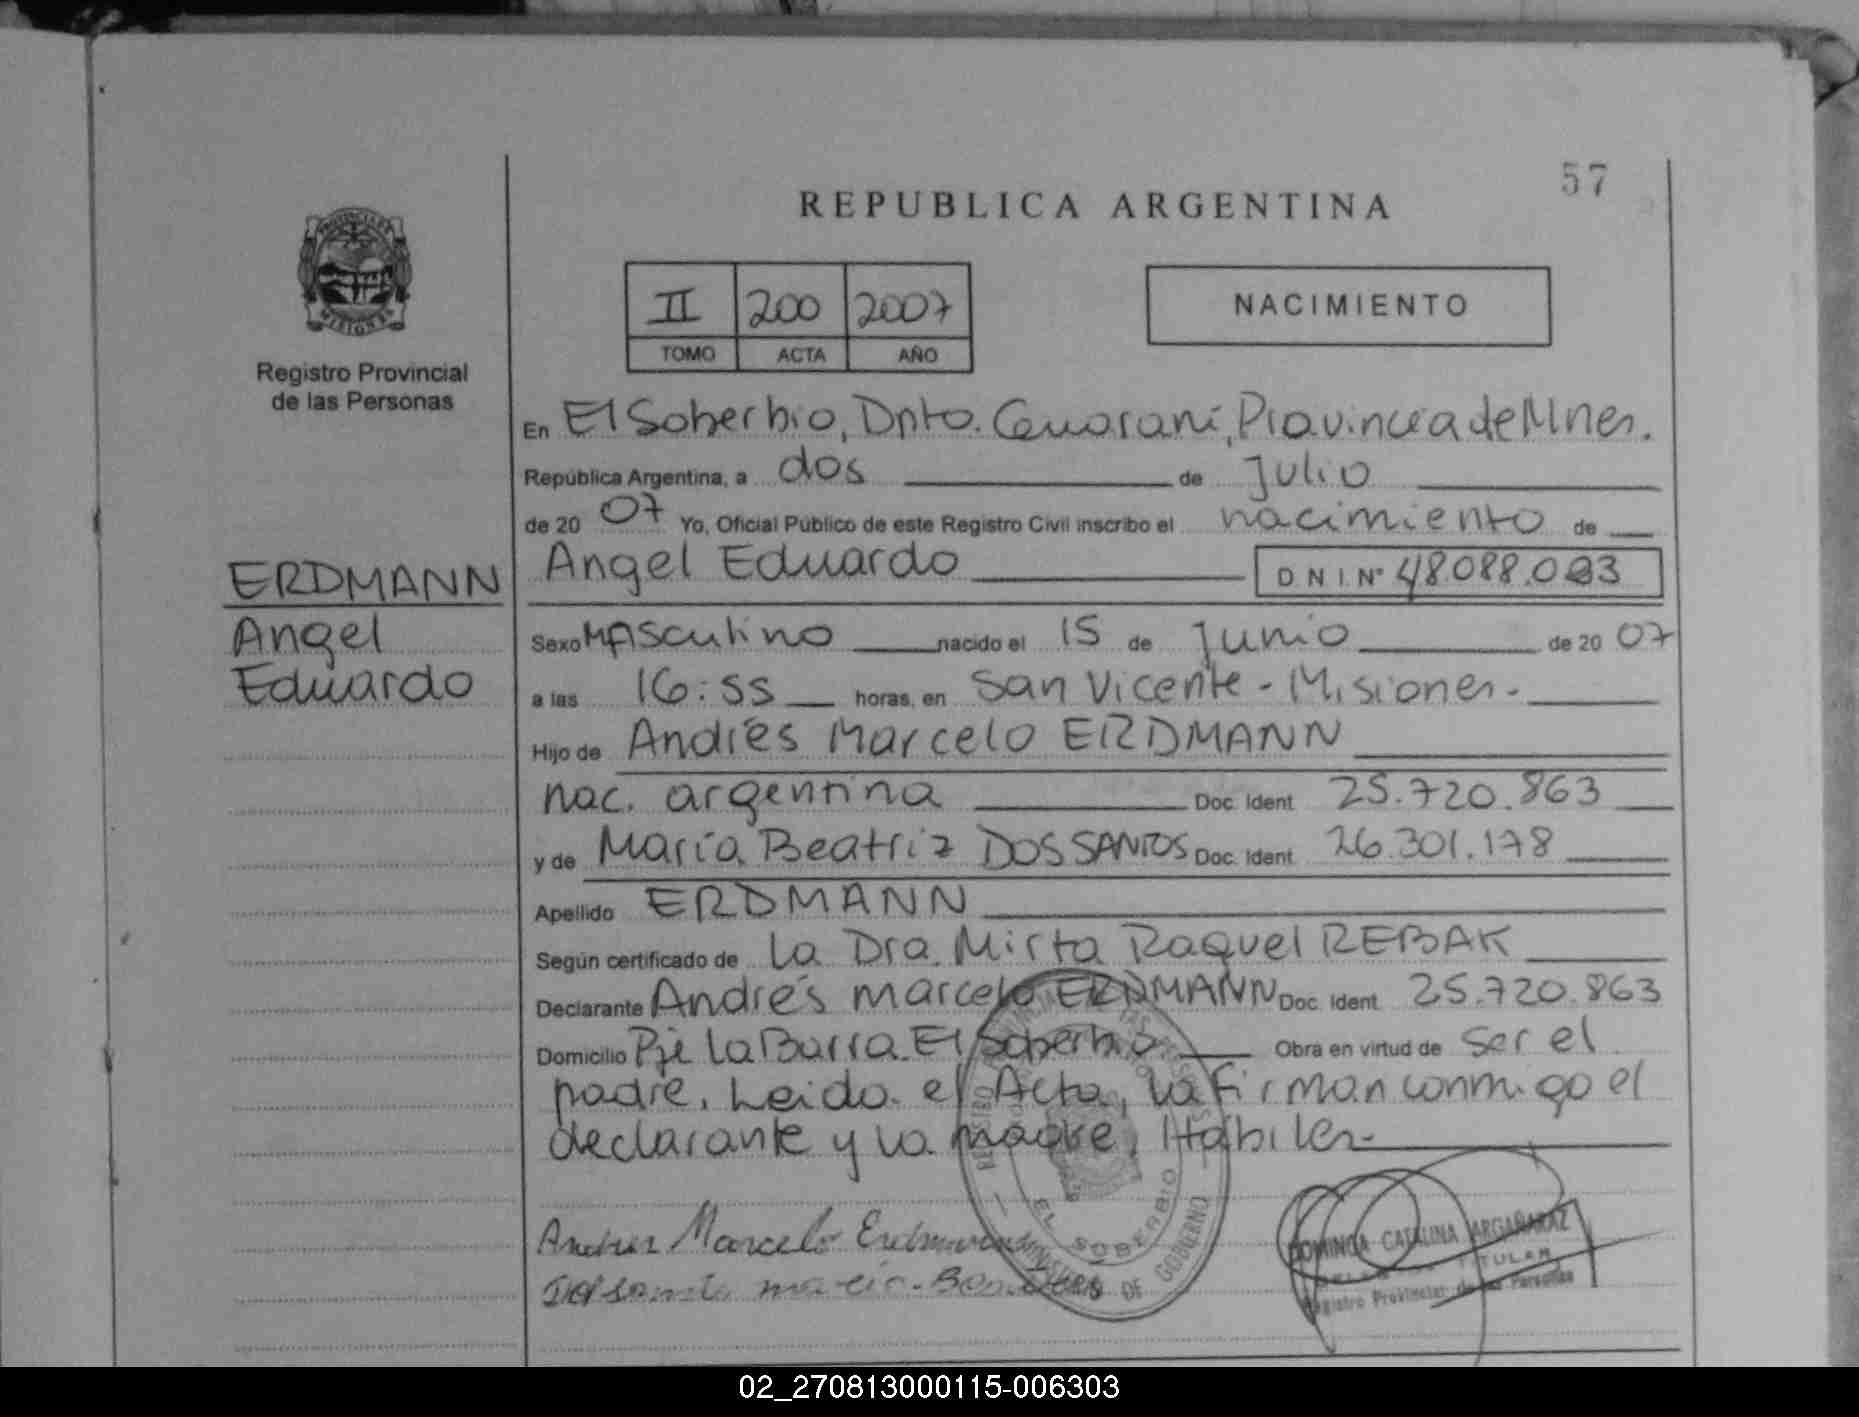 57
REPUBLICA ARGENTINA
PROVINCIA DE
MISIONES
Registro Provincial
de las Personas
II 200 2007
TOMO ACTA AÑO
NACIMIENTO
En El Soberbio, Dpto. Guaraní, Provincia de Mnes.
República Argentina, a dos de Julio
de 20 07 Yo, Oficial Público de este Registro Civil inscribo el nacimiento de
ERDMANN
Angel
Eduardo
Angel Eduardo DNI Nº 48.088.083
Sexo Masculino nacido el 15 de Junio de 20 07
a las 16:55 horas, en San Vicente - Misiones.
Hijo de Andrés Marcelo ERDMANN
nac. argentina Doc. Ident. 25.720.863
y de María Beatriz DOS SANTOS Doc. Ident. 26.301.178
Apellido ERDMANN
Según certificado de la Dra. Mirta Raquel REBAK
Declarante Andrés Marcelo ERDMANN Doc. Ident. 25.720.863
Domicilio Pje La Barra. El Soberbio Obra en virtud de ser el
padre. Leida el Acta, la firman conmigo el
declarante y la madre, Hábiles.
EL SOBERBIO
MINISTERIO DE GOBIERNO
Marcelo
DOMINGA CATALINA ARGAÑARAZ
TITULAR
Registro Provincial de las Personas
02_270813000115-006303